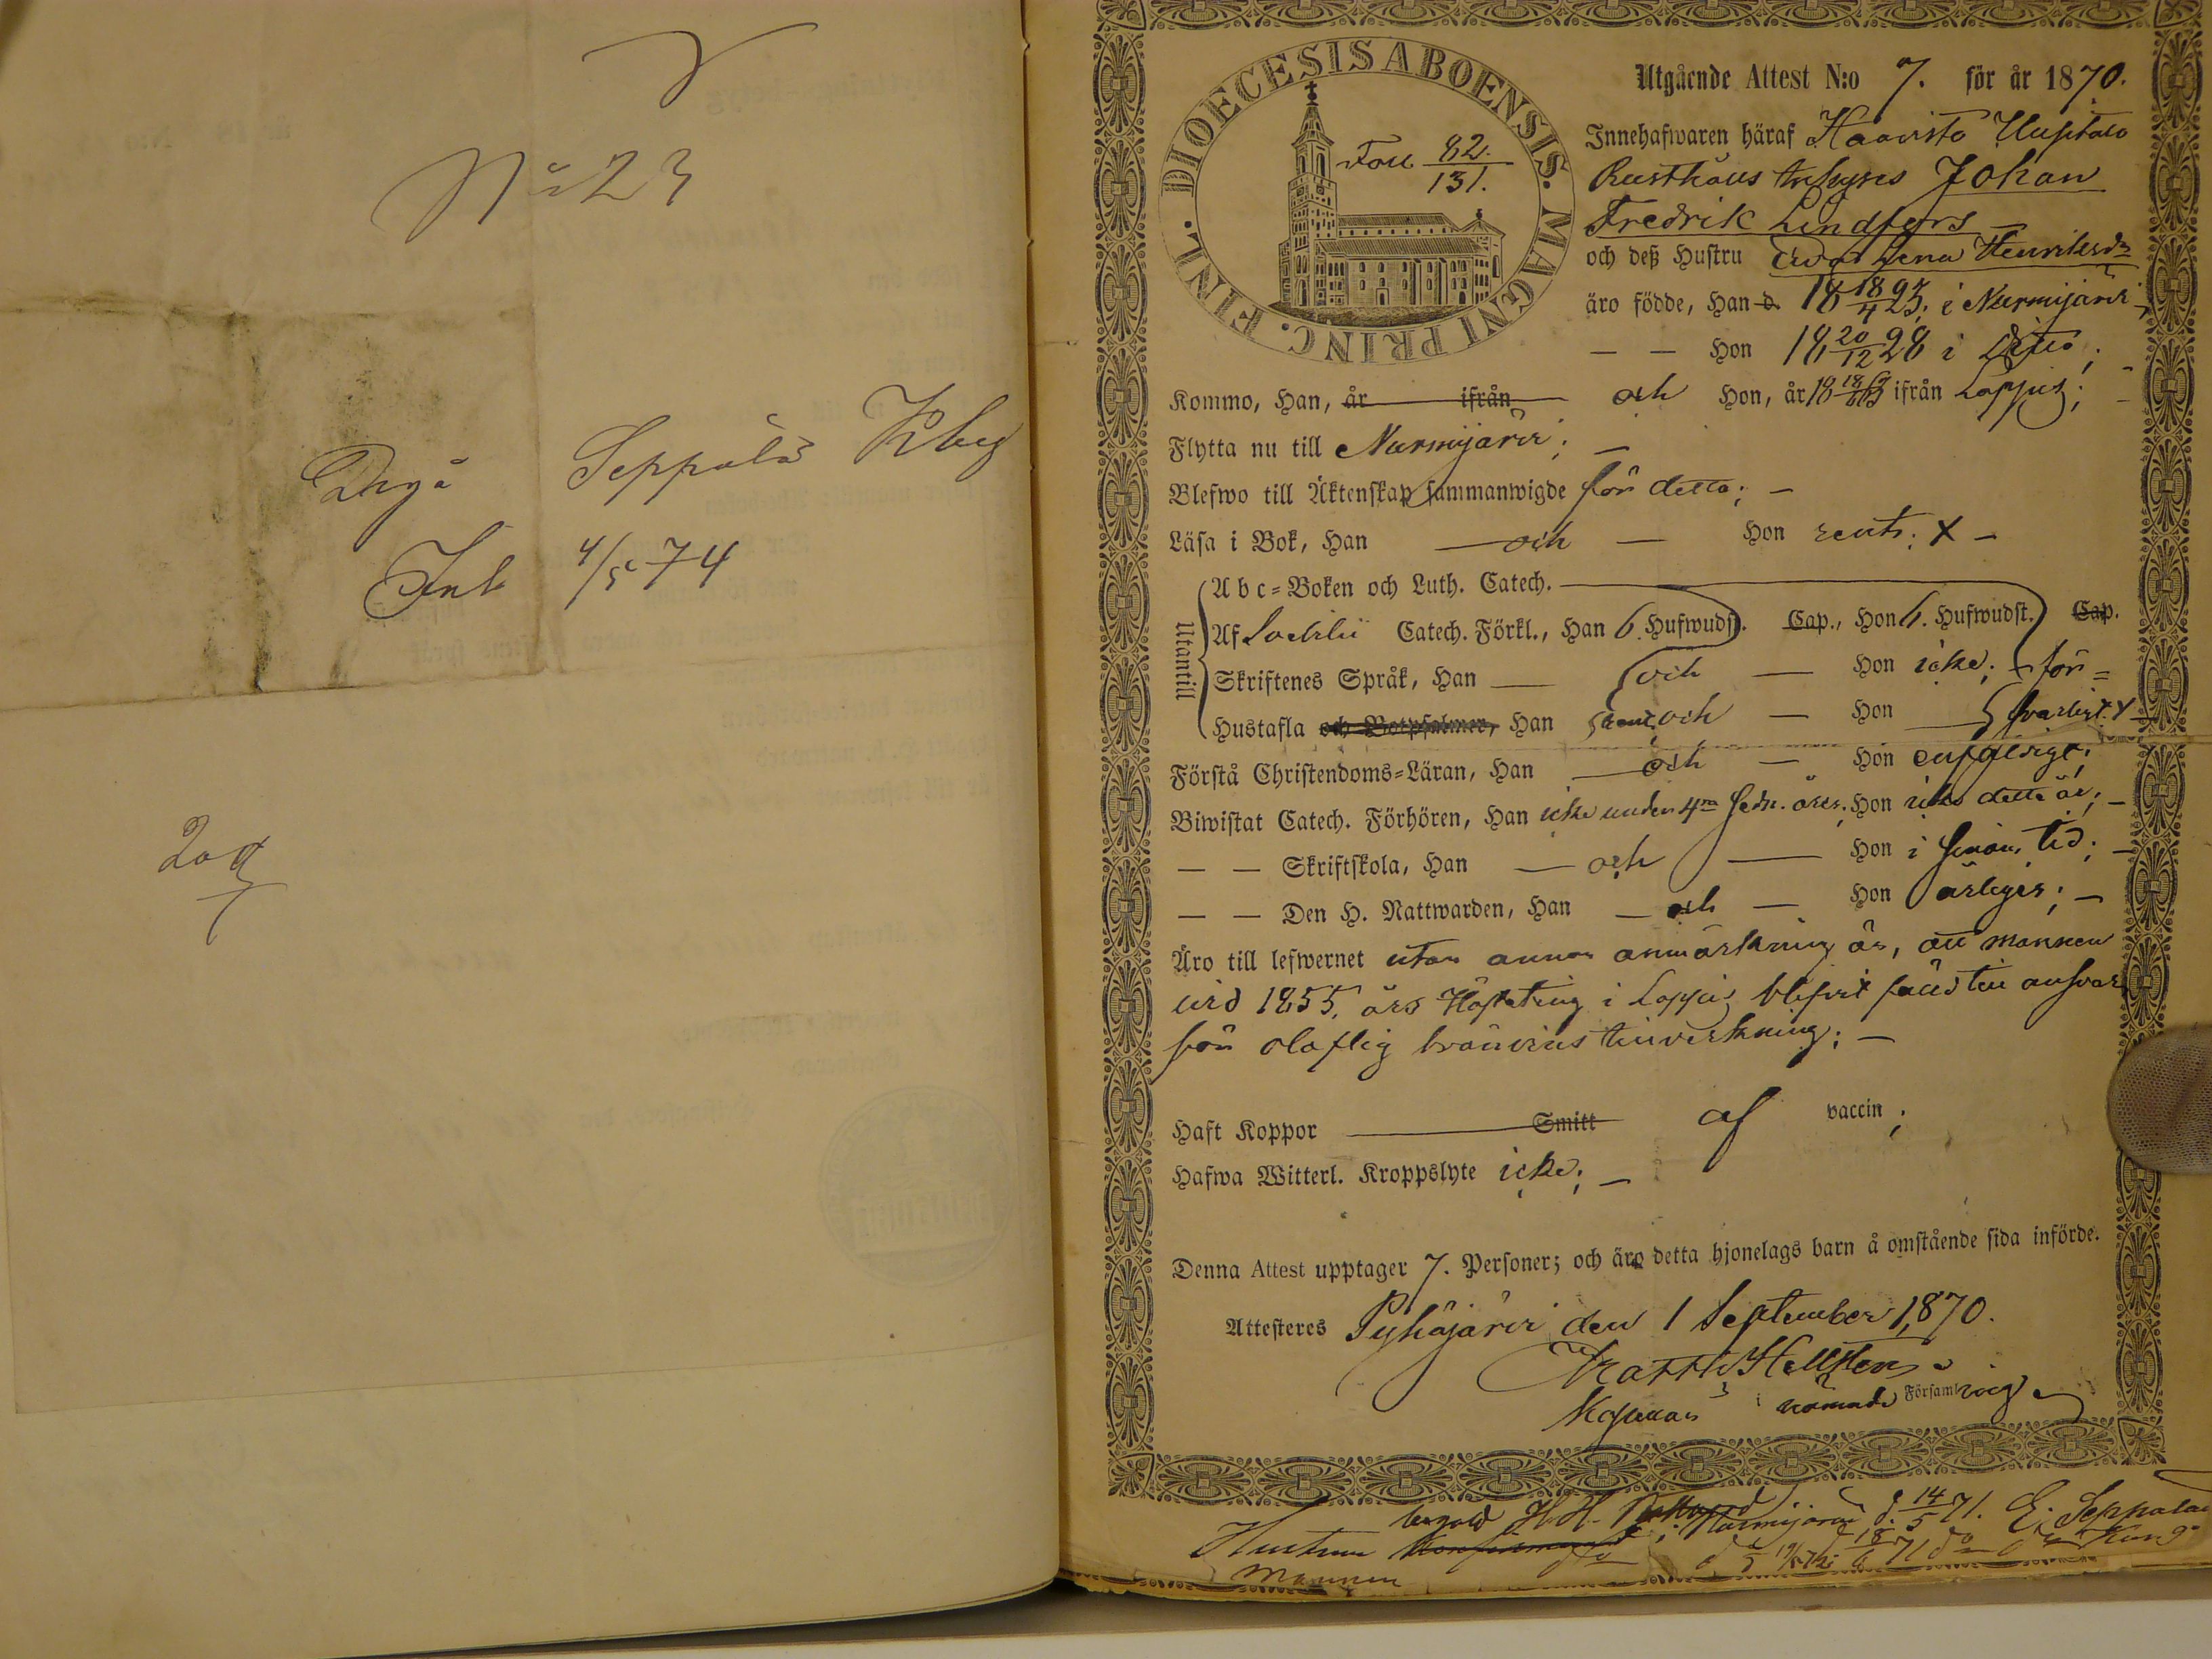 N:o 23
Seppälä Kby
Inl 4/5 74
DIOECESIS ABOENSIS. MAGNI PRINC. FINL.
Foll. 82./131.
Utgående Attest N:o 7. för år 1870.
Innehafwaren häraf Haavisto Uusitalo
Rusthåls Johan
Fredrik Lindfors
och deß Hustru Eva Lena Henriksdr
äro födde, Han d. 18 18/4 23; i Nurmijärvi
— — Hon 18 20/12 28 i ditto;
Kommo, Han, år ifrån och Hon, år 18 ifrån Loppis;
Flytta nu till Nurmijärvi; —
Blefwo till Äktenskap sammanwigde för detta; —
Läsa i Bok, Han — och — Hon rent; x —
Utantill
A b c=Boken och Luth. Catech.
Af Catech. Förkl., Han 6. Hufwudst. Cap., Hon 6. Hufwudst. Cap.
Skriftenes Språk, Han — och — Hon icke; — för=
Hustafla och Botpsalmer, Han och — Hon — svarligt. x
Förstå Christendoms=Läran, Han — och — Hon enfaldigt;
Biwistat Catech. Förhören, Han icke under 4ra sedn. åren; Hon icke detta år; —
— — Skriftskola, Han — och — Hon i sinom tid; —
— — Den H. Nattwarden, Han — och — Hon årligen; —
Äro till lefwernet utan annan anmärkning än, att mannen
vid 1855. års Hösteting i Loppis blifvit fälld till ansvar
för olaflig bränvins tillverkning; —
Haft Koppor Smitt af vaccin;
Hafwa Witterl. Kroppslyte icke; —
Denna Attest upptager 7. Personer; och äro detta hjonelags barn å omstående sida införde.
Attesteres Pyhäjärvi den 1 September 1870.
Matth. Hellsten
Kapellan i nämnde Församling
H. H. Nattvard i Nurmijärvi d. 14/5 71. E. Seppälä
Hustrun
Mannen